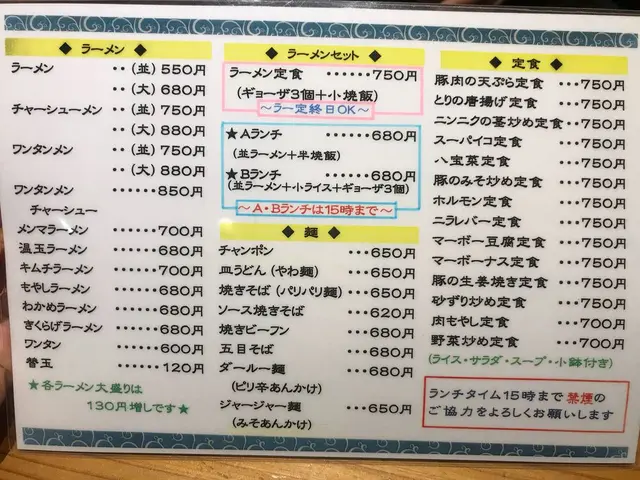 ◆ ラーメン ◆
ラーメン ・・(並) 550円
・・(大) 680円
チャーシューメン ・・(並) 750円
・・(大) 880円
ワンタンメン ・・(並) 750円
・・(大) 880円
ワンタンメン ・・・・・・850円
チャーシュー
メンマラーメン ・・・・・・700円
温玉ラーメン ・・・・・・680円
キムチラーメン ・・・・・・700円
もやしラーメン ・・・・・・680円
わかめラーメン ・・・・・・680円
きくらげラーメン ・・・・・・680円
ワンタン ・・・・・・600円
替玉 ・・・・・・120円
★各ラーメン大盛りは
130円増しです★
◆ ラーメンセット ◆
ラーメン定食 ・・・・・・750円
(ギョーザ3個+小焼飯)
〜ラー定終日OK〜
★Aランチ ・・・・・・680円
(並ラーメン+半焼飯)
★Bランチ ・・・・・・680円
(並ラーメン+小ライス+ギョーザ3個)
〜A・Bランチは15時まで〜
◆ 麺 ◆
チャンポン ・・・650円
皿うどん(やわ麺) ・・・650円
焼きそば(パリパリ麺)・・・650円
ソース焼きそば ・・・620円
焼きビーフン ・・・680円
五目そば ・・・680円
ダールー麺 ・・・680円
(ピリ辛あんかけ)
ジャージャー麺 ・・・650円
(みそあんかけ)
◆ 定食 ◆
豚肉の天ぷら定食 ・・・750円
とりの唐揚げ定食 ・・・750円
ニンニクの茎炒め定食・・750円
スーパイコ定食 ・・・750円
八宝菜定食 ・・・750円
豚のみそ炒め定食 ・・・750円
ホルモン定食 ・・・750円
ニラレバー定食 ・・・750円
マーボー豆腐定食 ・・・750円
マーボーナス定食 ・・・750円
豚の生姜焼き定食 ・・・750円
砂ずり炒め定食 ・・・750円
肉もやし定食 ・・・700円
野菜炒め定食 ・・・700円
(ライス・サラダ・スープ・小鉢付き)
ランチタイム15時まで禁煙の
ご協力をよろしくお願いします